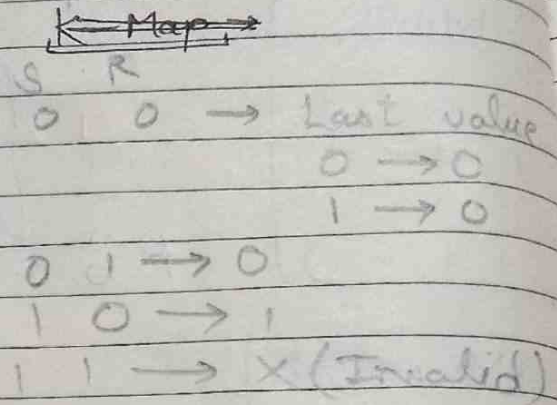 K-Map
S R
0 0 → Last value
0 → 0
1 → 0
0 1 → 0
1 0 → 1
1 1 → X (Invalid)